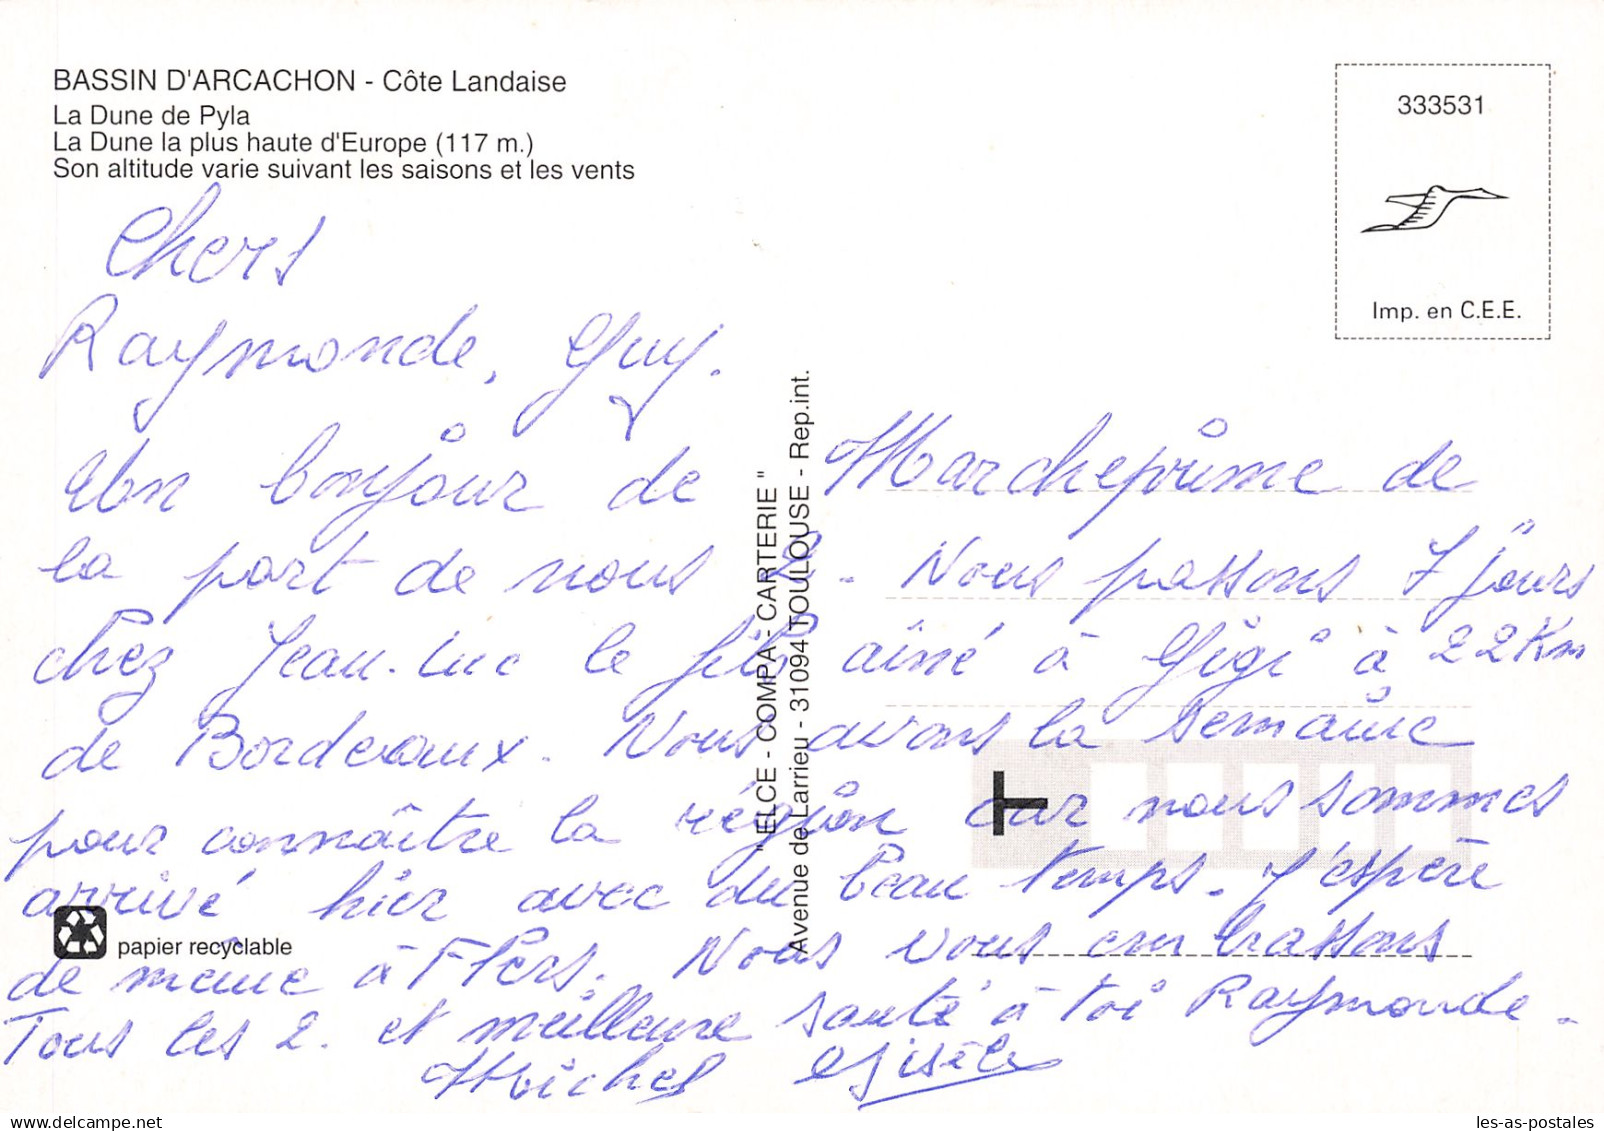 BASSIN D'ARCACHON - Côte Landaise
La Dune de Pyla
La Dune la plus haute d'Europe (117 m.)
Son altitude varie suivant les saisons et les vents
333531
Imp. en C.E.E.
Chers
Raymonde, Guy.
Un bonjour de Marcheprime de
la part de nous 2. Nous passons 7 jours
chez Jean-Luc le fils ainé à Gigi à 22 Km
de Bordeaux. Nous avons la semaine
pour connaître la région car nous sommes
arrivé hier avec du beau temps. J'espère
de même à Flers. Nous vous embrassons
Tous les 2. et meilleure santé à toi Raymonde.
Michel Gisèle
"ELCE - COMPA - CARTERIE"
Avenue de Larrieu - 31094 TOULOUSE - Rep.int.
T
papier recyclable
les-as-postales
delcampe.net